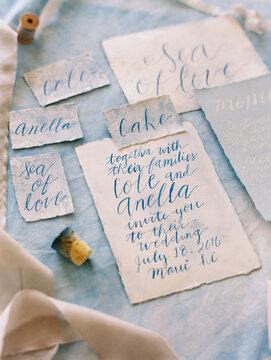 Sea
of love
Cole
Menu
Anella
Cake
Sea
of
love
together with
their families
Cole and
Anella
invite you
to their
wedding
July 18. 2016
Maui hi